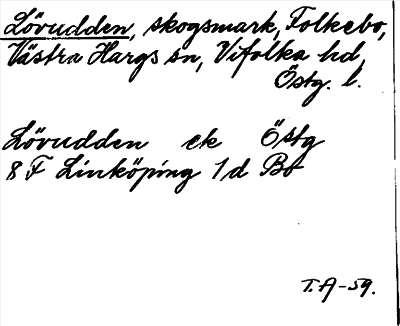 Lövudden, skogsmark, Folkebo,
Västra Hargs sn, Vifolka hd,
Östg. l.
Lövudden ek Östg
8 F Linköping 1 d Bo
T.A-59.